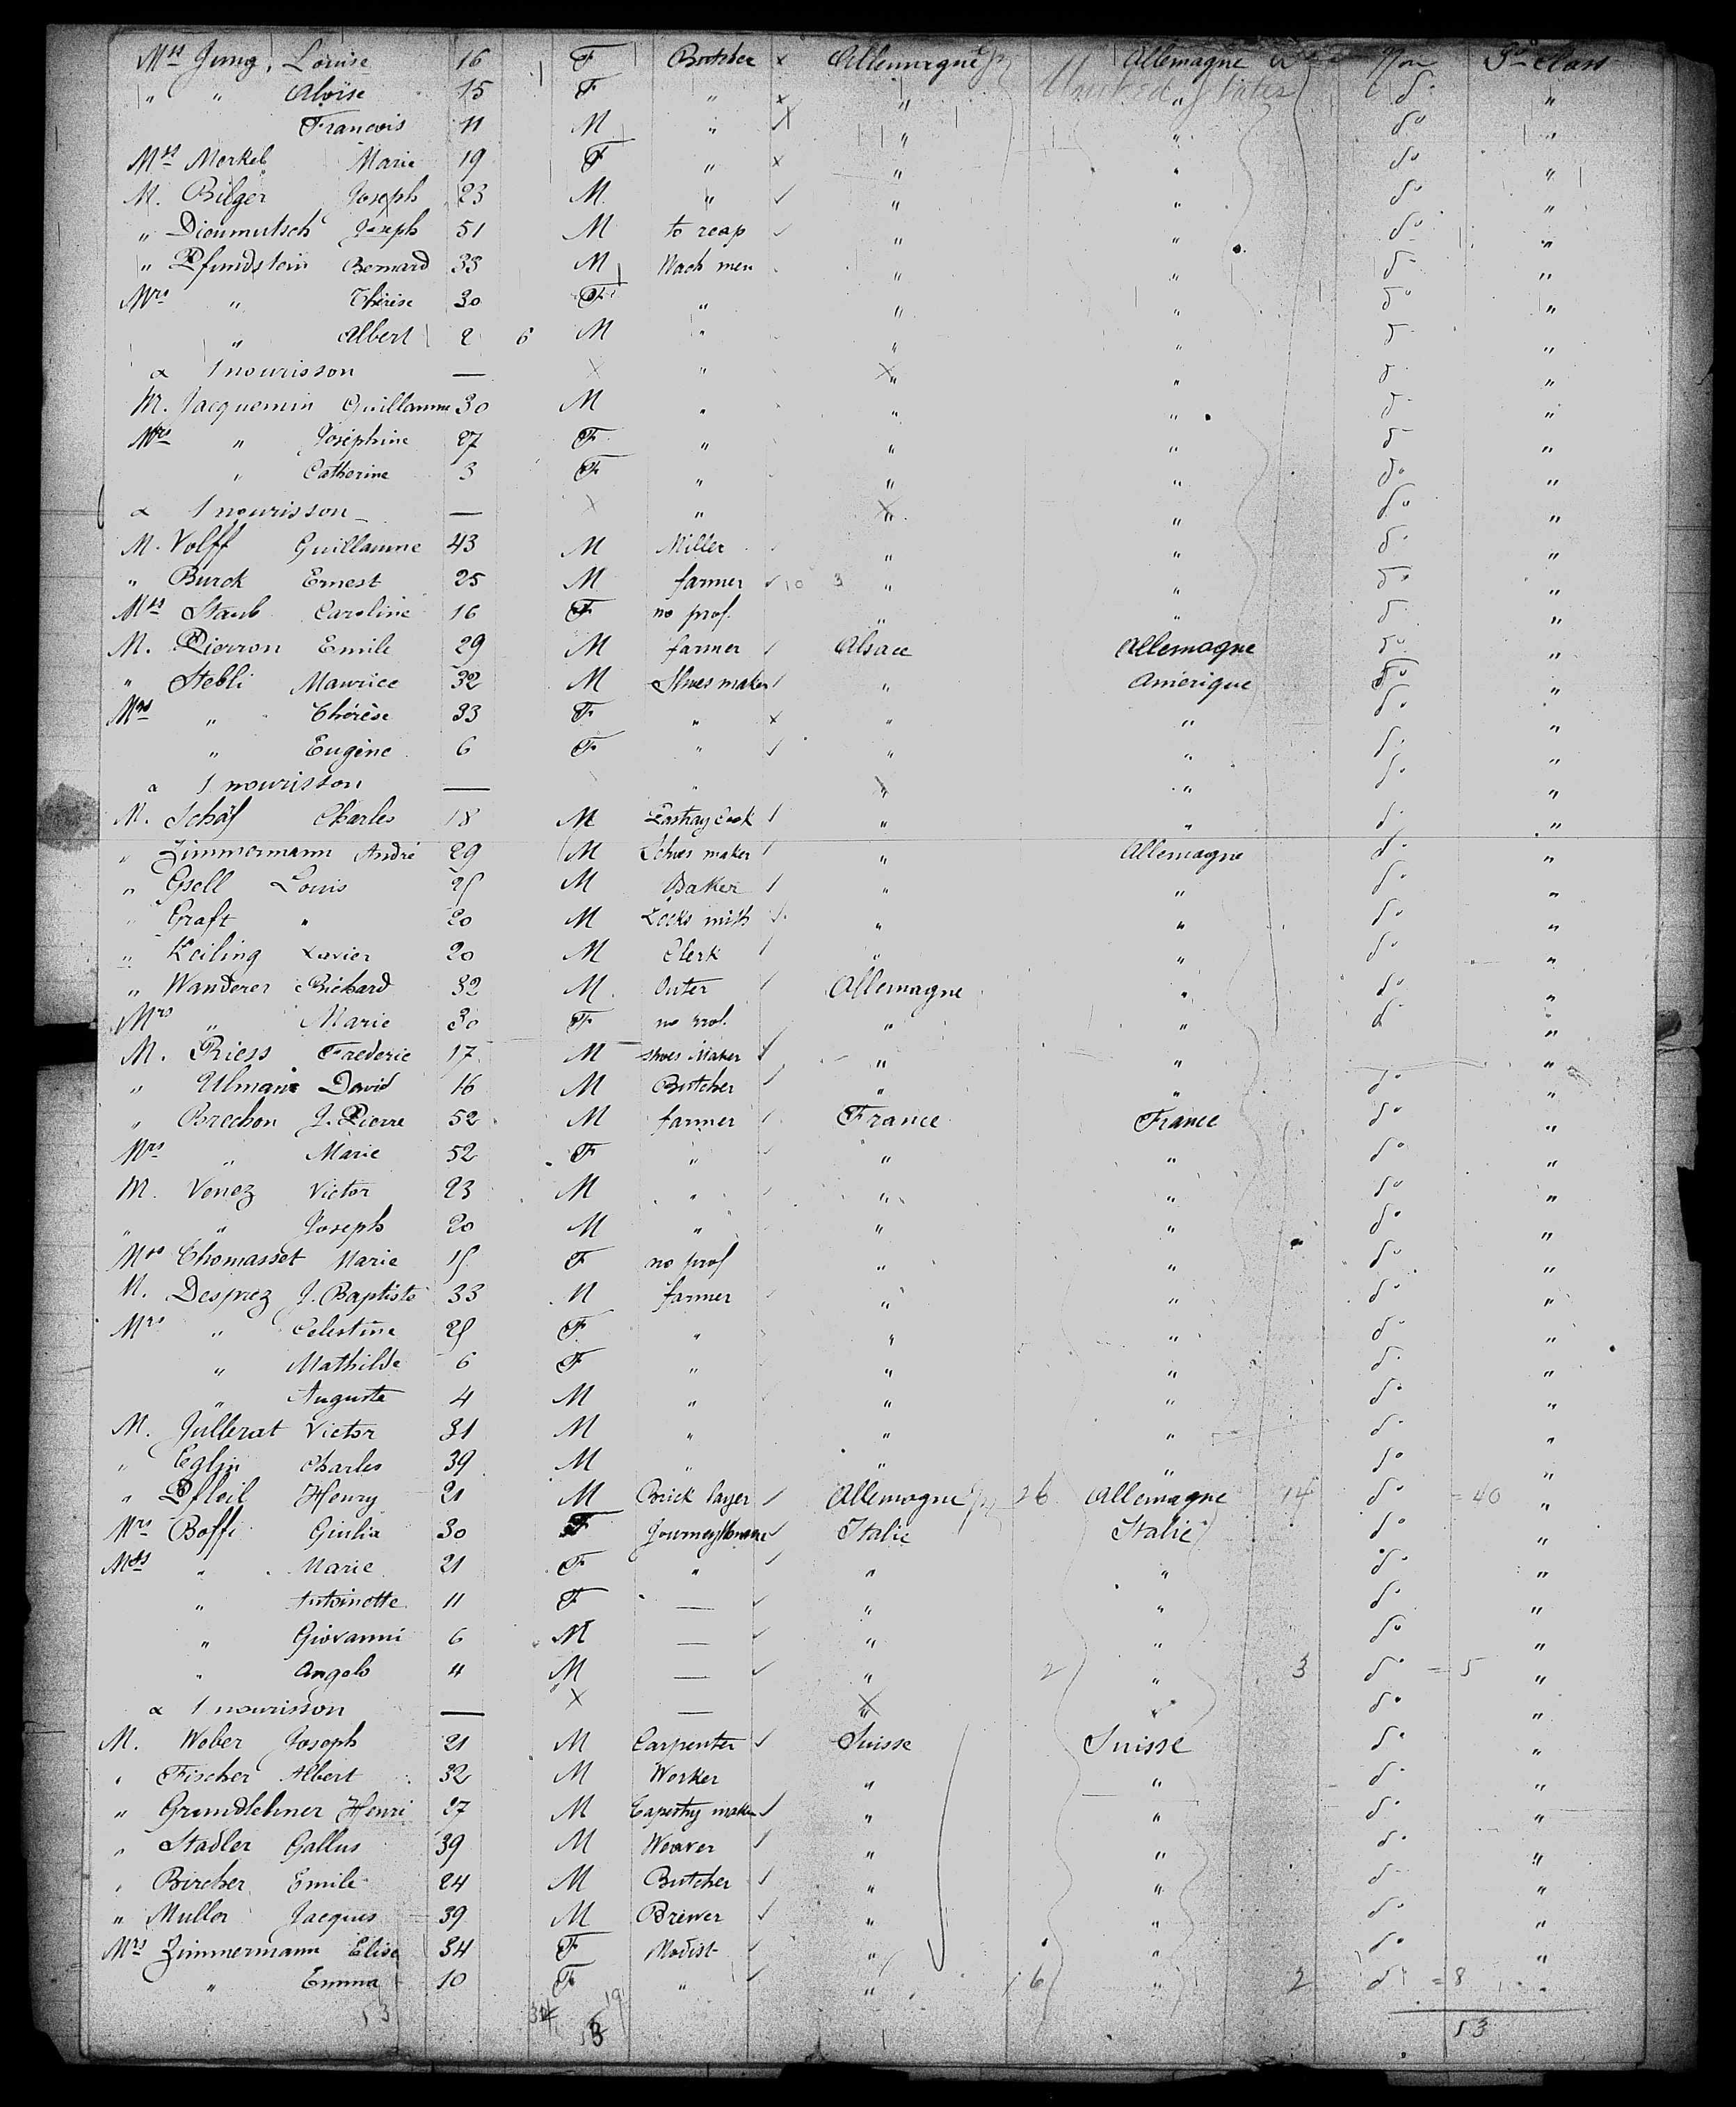 Mss Jung, Louise 16 F Butcher x Allemagne Allemagne Non 3d class
" " Aloïse 15 F " x " United States " do "
Francois 11 M " x " " do "
Mss Merkel Marie 19 F " x " " do "
M. Bilger Joseph 23 M. " ✓ " " do "
" Joseph 51 M to reap ✓ " " do "
" Pfundstein Bernard 33 M Wach men " " do "
Mrs " Thérèse 30 F " " " do "
" Albert 2 6 M " " " do "
& 1 nourisson — x " x " do "
M. Jacquemin Guillaume 30 M " " " do "
Mrs " Joséphine 27 F " " " do "
" Catherine 3 F " " " do "
& 1 nourisson — x " x " do "
M. Volff Guillaume 43 M Miller " " do "
" Burck Ernest 25 M farmer ✓ 10 3 " " do "
Mss Staub Caroline 16 F no prof. " " do "
M. Pierron Emile 29 M farmer ✓ Alsace Allemagne do "
" Stebli Maurice 32 M Shoes maker ✓ " Amérique do "
Mrs " Thérèse 33 F " x " " do "
" Eugène 6 F " ✓ " " do "
& 1 nourisson — " x " do "
M. Schäf Charles 18 M Pastry Cook ✓ " " do "
" Zimmermann André 29 M Schoes maker ✓ " Allemagne do "
" Gsell Louis 25 M Baker ✓ " " do "
" Graft " 20 M Locks mith ✓ " " do "
" Keiling Xavier 20 M Clerk ✓ " " do "
" Wanderer Richard 32 M. ✓ Allemagne " do "
Mrs " Marie 30 F no prof. " " do "
M. Riess Frederic 17 M shoes Maker ✓ " " "
" Ulmann David 16 M Butcher ✓ " " do "
" Brechon J. Pierre 52 M farmer ✓ France France do "
Mrs " Marie 52 F " ✓ " " do "
M. Venez Victor 23 M " ✓ " " do "
" " Joseph 20 M " " " do "
Mss Thomasset Marie 15 F no prof " " do "
M. Desprez J. Baptiste 33 M farmer ✓ " " do "
Mrs " Celestine 25 F " " " do "
" Mathilde 6 F " " " do "
" Auguste 4 M " " " do "
M. Jullerat Victor 31 M " " " do "
" Eglin Charles 39 M " " " do "
" Pfleil Henry 21 M Brick layer ✓ Allemagne 26 Allemagne 14 do = 40 "
Mrs Boffi Giulia 30 F ✓ Italie Italie do "
Mss " Marie 21 F " ✓ " " do "
" Antoinette 11 F — ✓ " " do "
" Giovanni 6 M — ✓ " " do "
" Angelo 4 M — ✓ " 2 " 3 do = 5 "
& 1 nourisson — x — x " do "
M. Weber Joseph 21 M Carpenter ✓ Suisse Suisse do "
" Fischer Albert 32 M Worker " " do "
" Grundlehner Henri 27 M Tapestry maker ✓ " " do "
" Stadler Gallus 39 M Weaver ✓ " " do "
" Bircher Emile 24 M Butcher ✓ " " do "
" Muller Jacques 39 M Brewer ✓ " " do "
Mrs Zimmermann Elise 34 F Modist ✓ " " do "
" Emma 10 F " ✓ " 6 " 2 do = 8 "
53 34 19 53